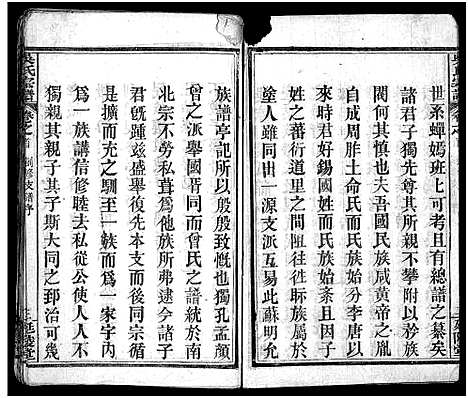 世系蟬嫣班班可考且有總譜之纂矣
諸君子獨先尊其所親不攀附不矜
閥何其慎也夫吾國民族咸黃帝之胤
自成周胙土命氏而民族始分李唐以
來時君好錫國姓而民族始紊而且
姓之蕃衍道里之間阻往往眎族屬於
塗人雖同出一源支派互易此蘇明允
族譜亭記所以殷殷致慨也獨孔孟顏
曾之派舉國晉同而曾氏之譜統於南
北宗不勞私葺為他族所弗逮今諸子
君旣踵茲盛舉復先本支而後同宗循
是擴而充之馴至一族而爲一家宇內
爲一族講信修睦去私從公使人人不
獨親其親子其子斯大同之郅治可幾
吳氏宗譜
卷之首
創修支譜序
延陵堂